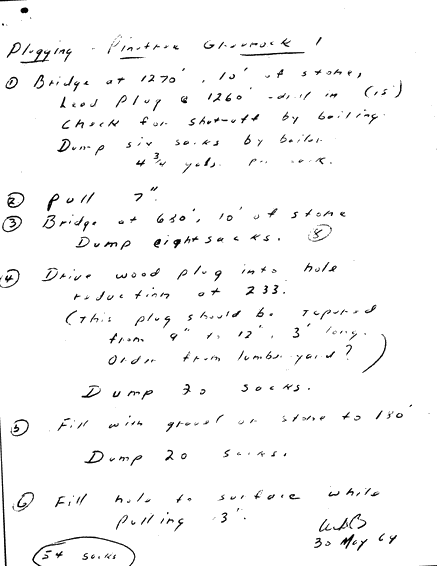 Plugging - Pinetree Glassrock 1
① Bridge at 1270', 10' of stone,
Lead Plug @ 1260' - drill in (15')
Check for shut-off by bailing.
Dump six sacks by bailer
4 3/4 gals. per sack.
② Pull 7".
③ Bridge at 630', 10' of stone
Dump eight sacks. ⑧
④ Drive wood plug into hole
reduction at 233.
(This plug should be tapered
from 9" to 12", 3' long.
Order from lumber yard?)
Dump 20 sacks.
⑤ Fill with gravel or stone to 130'
Dump 20 sacks.
⑥ Fill hole to surface while
pulling 13".
30 May 64
54 sacks